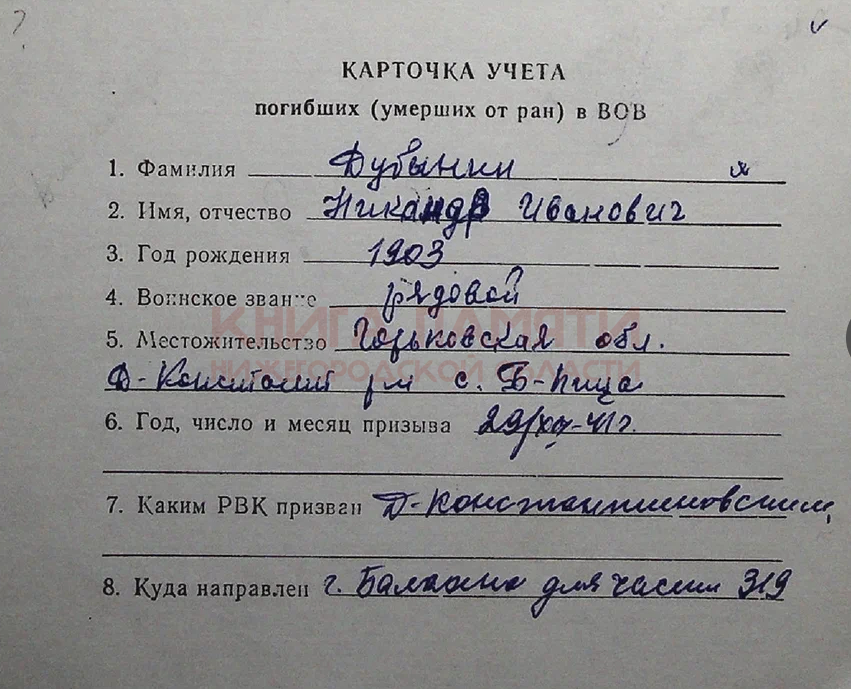 КАРТОЧКА УЧЕТА
погибших (умерших от ран) в ВОВ
1. Фамилия Дубынин
2. Имя, отчество Никандр Иванович
3. Год рождения 1903
4. Воинское звание рядовой
КНИГА ПАМЯТИ
5. Местожительство Горьковская обл.
НИЖЕГОРОДСКОЙ ОБЛАСТИ
Д-Констант рн с. Б-Пица
6. Год, число и месяц призыва 29/XII-41г.
7. Каким РВК призван Д-Константиновским
8. Куда направлен г. для части 319